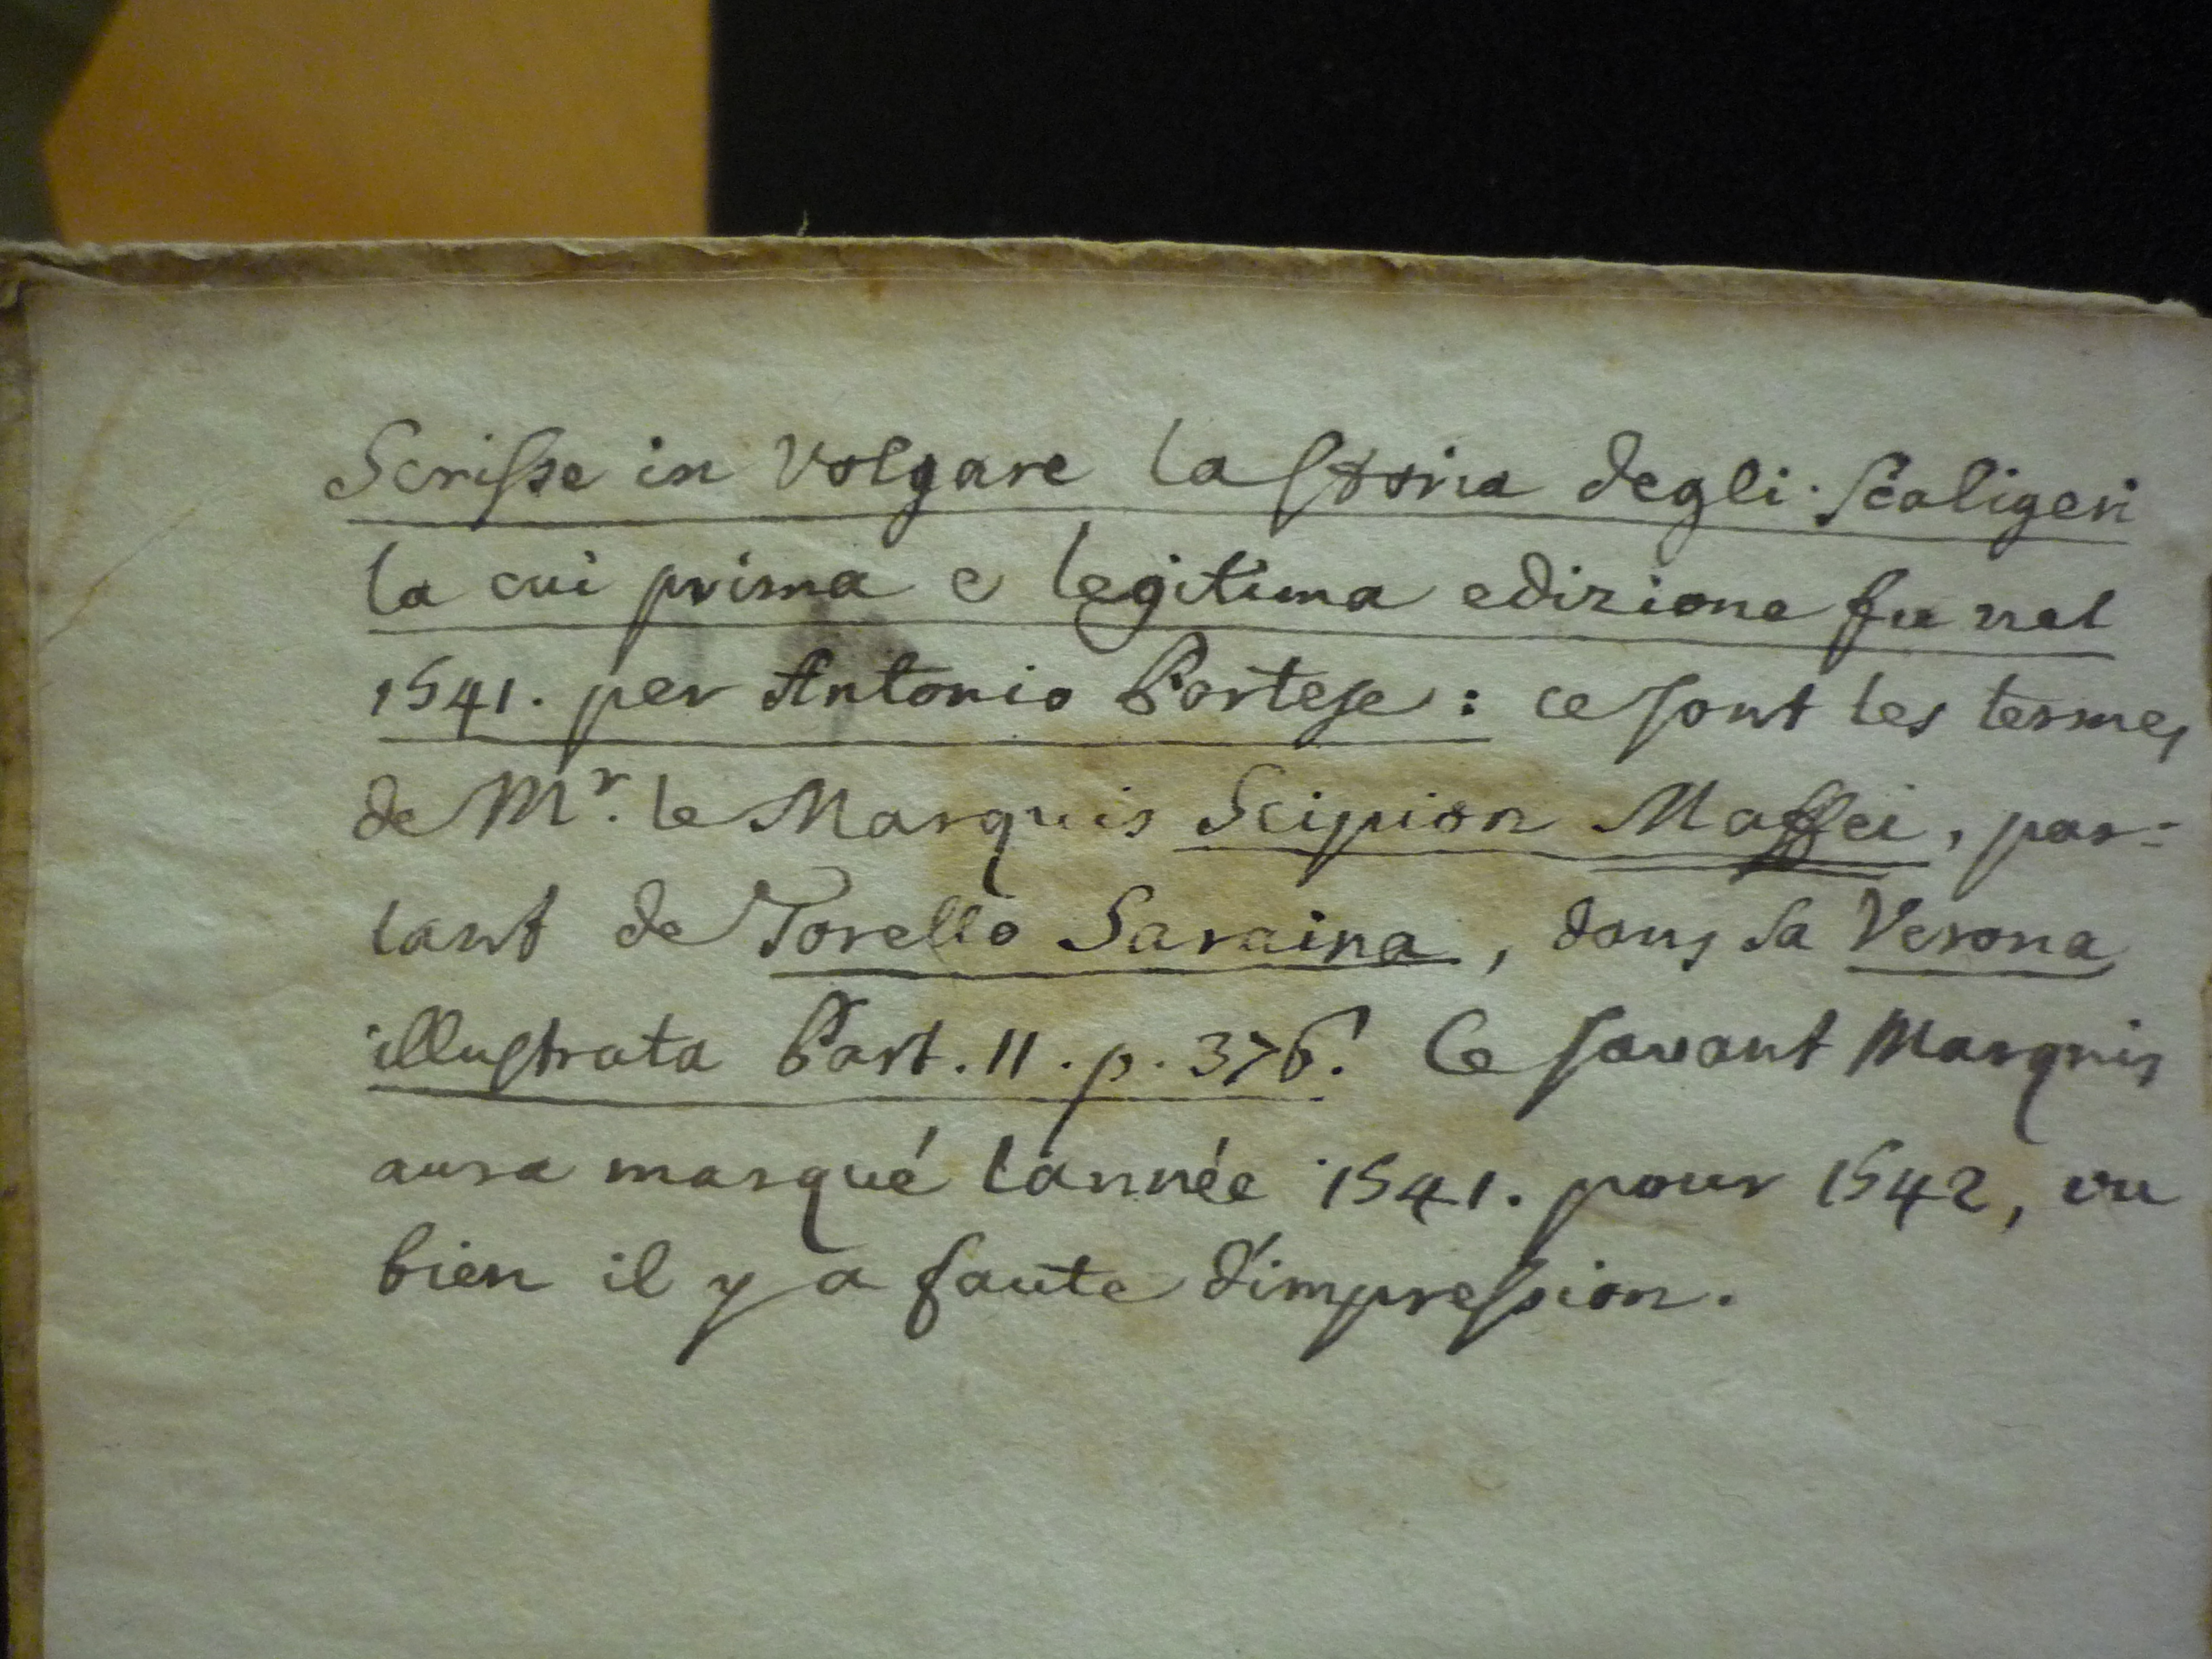 Scrisse in Volgare la storia degli Scaligeri
la cui prima e legitima edizione fu nel
1541. per Antonio Portese: ce sont les termes
de Mr. le Marquis Scipion Maffei, par=
lant de Torello Saraina, dans sa Verona
illustrata Part. II. p. 376. Ce savant Marquis
aura marqué l'année 1541. pour 1542, ou
bien il y a faute d'impression.